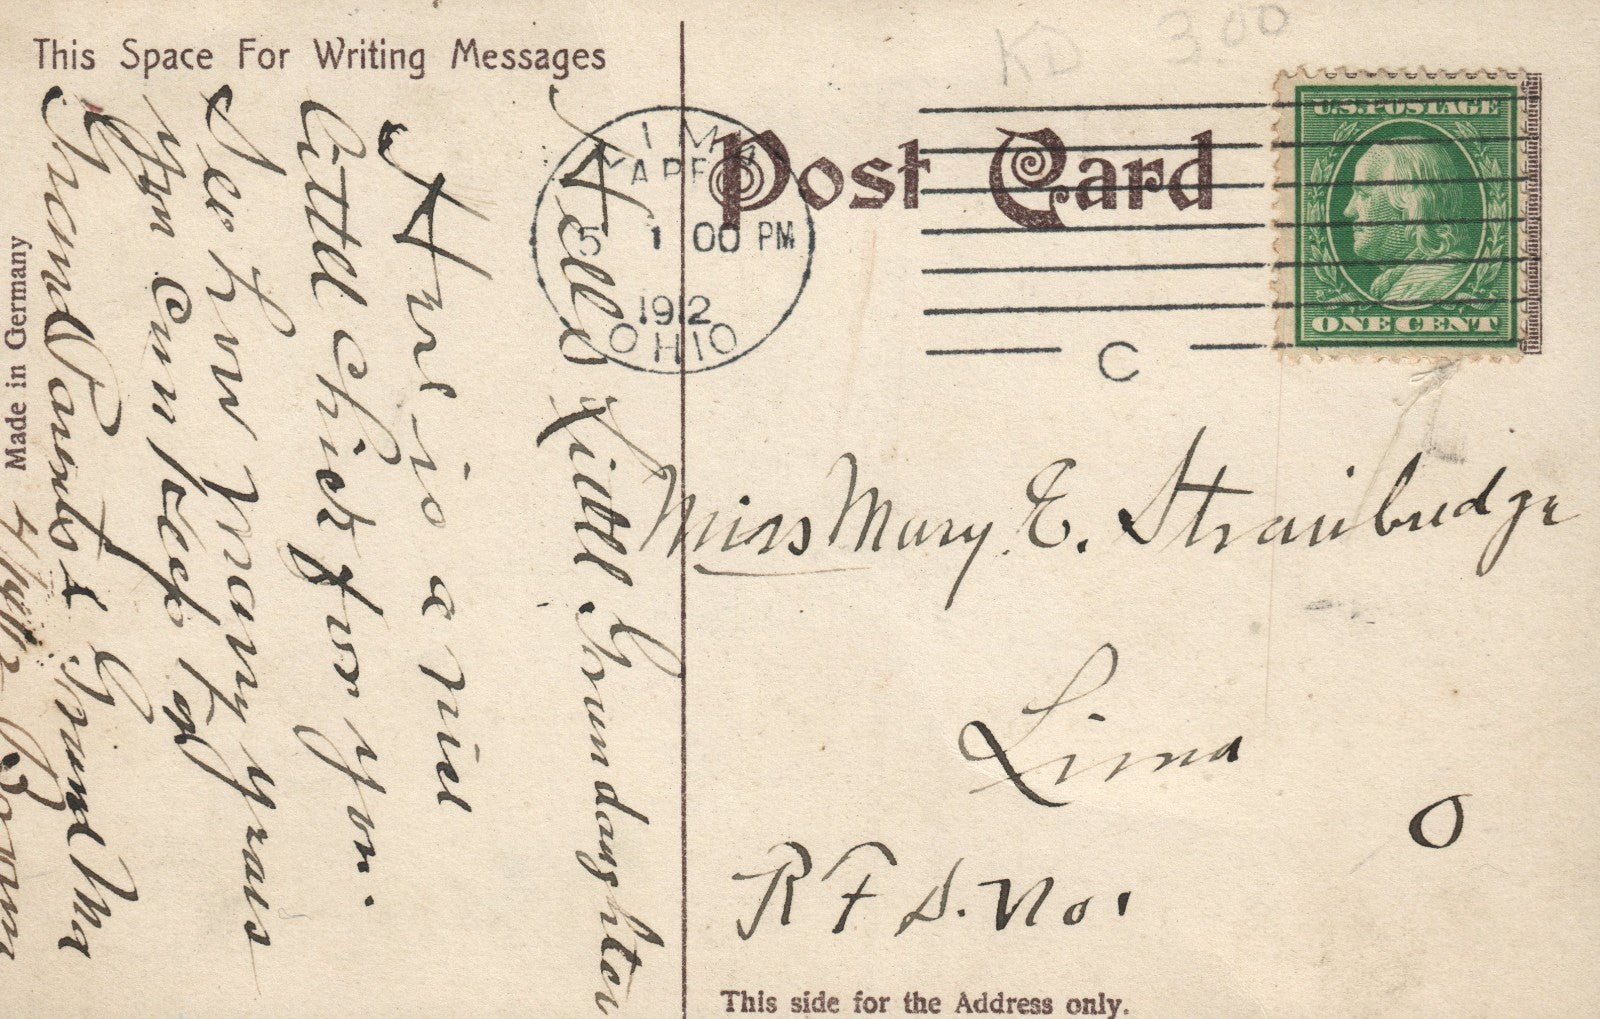 This Space For Writing Messages
Hello Little Grandaughter
Hre is a nice
little chick for you.
See how many years
you can keep it
Grand Parents & Grand Ma
Made in Germany
KD 3.00
Post Card
LIMA
APR
5 1 00 PM
1912
OHIO
C
U.S. POSTAGE
ONE CENT
Miss Mary E. Strawbridge
Lima
O
R F D. No 1
This side for the Address only.